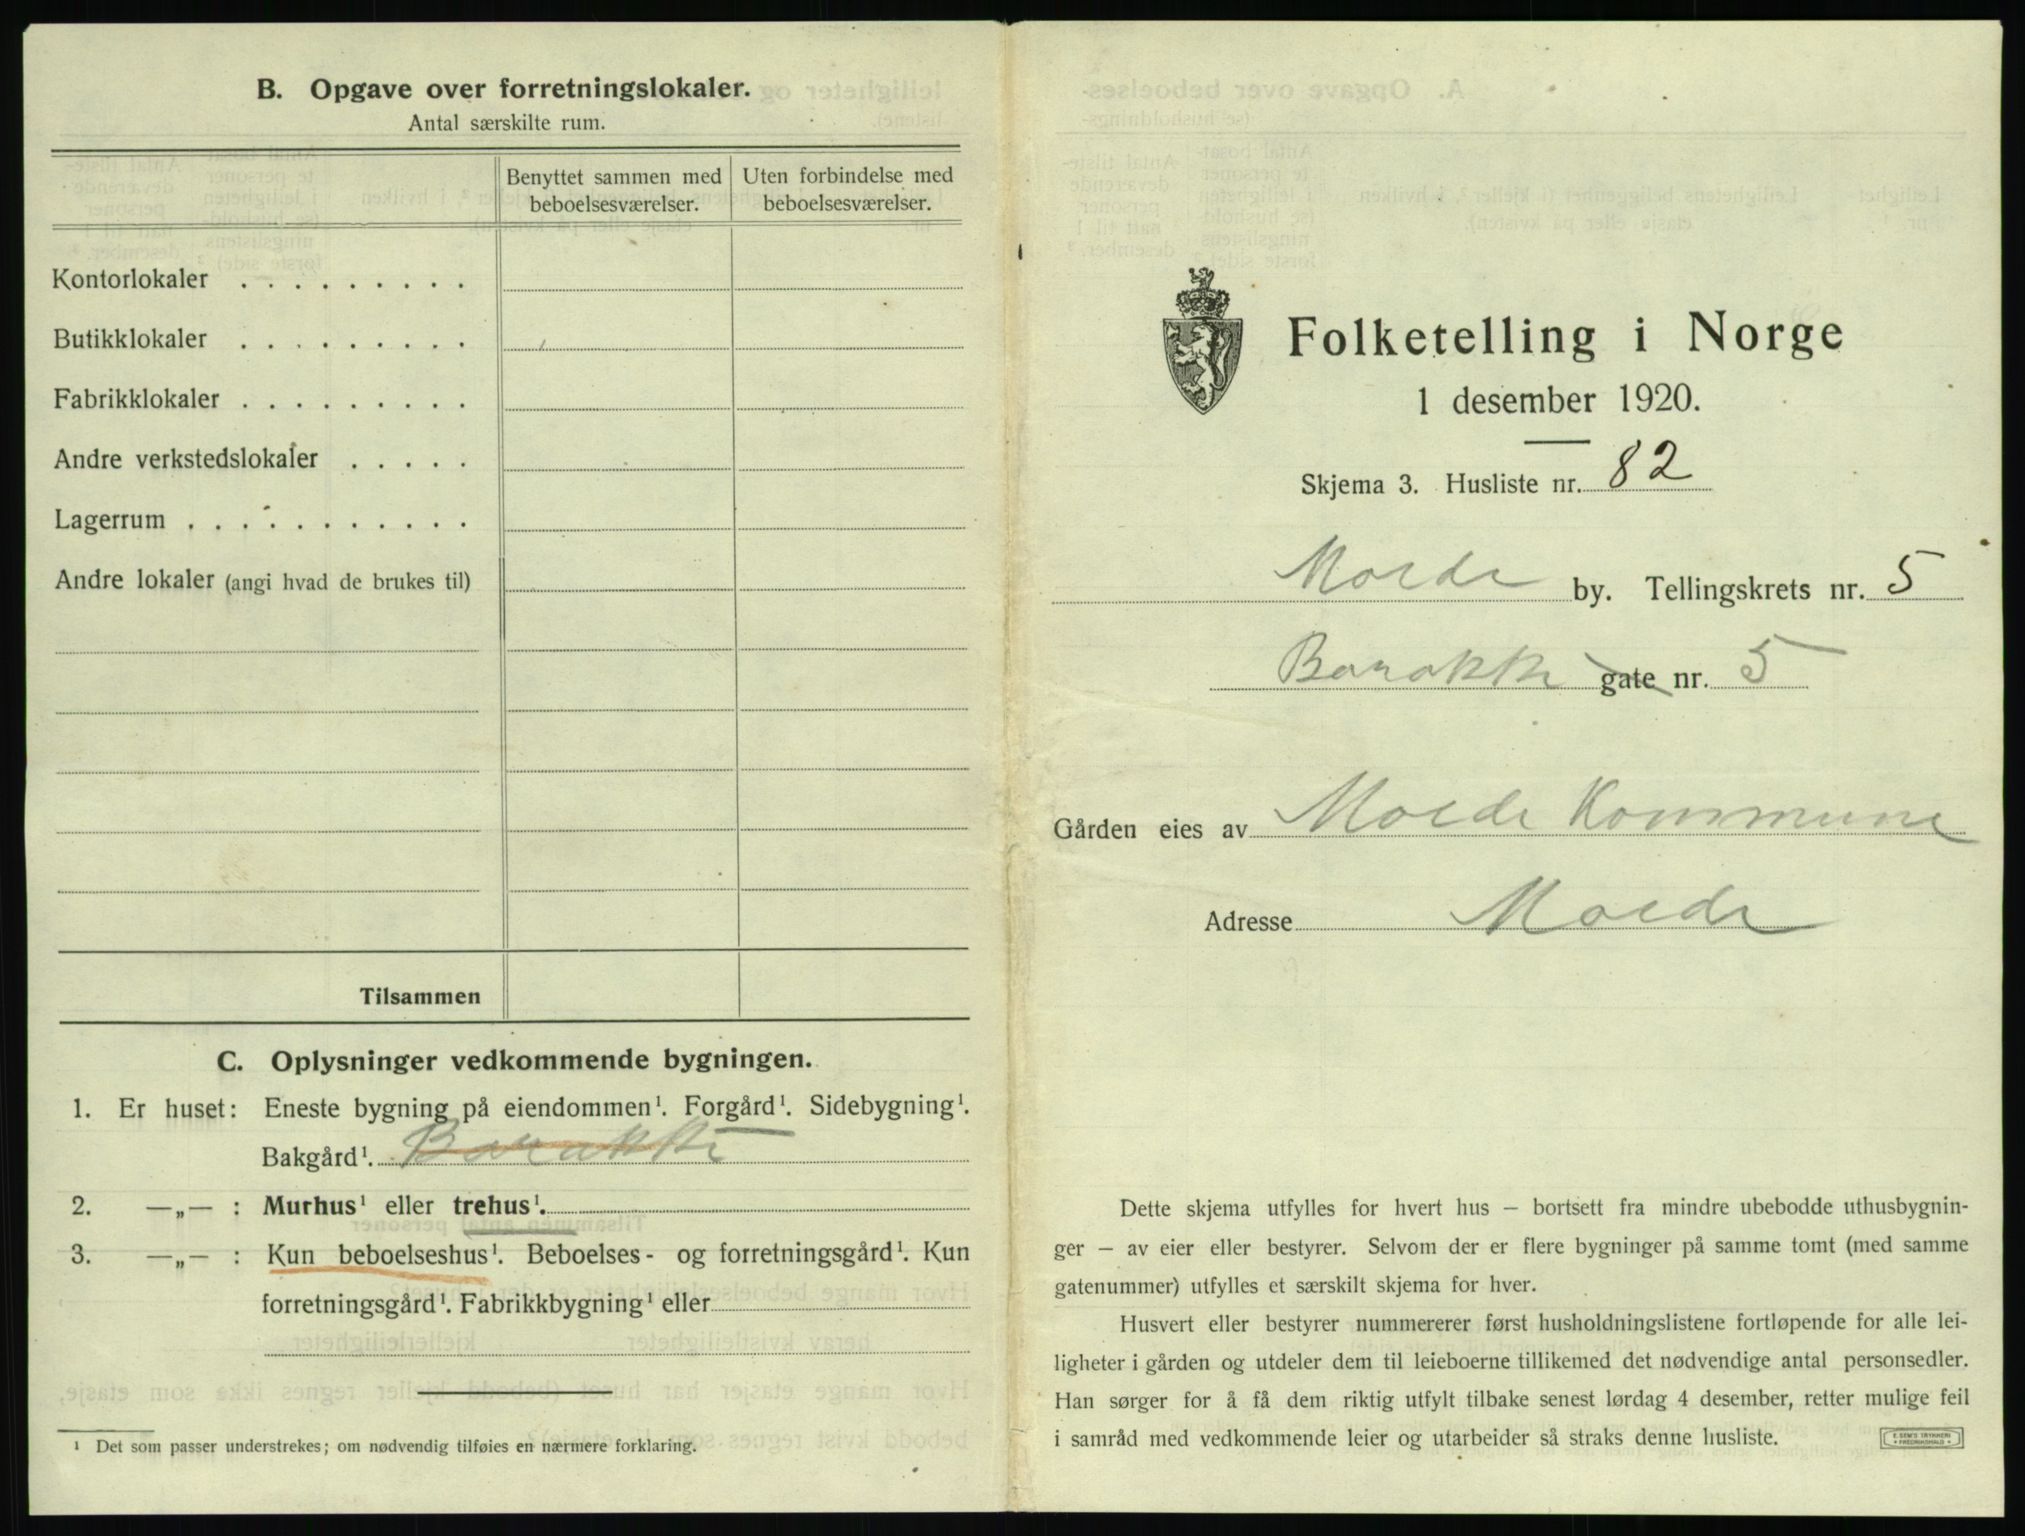 B. Opgave over forretningslokaler.
Antal særskilte rum.
Benyttet sammen med beboelsesværelser.
Uten forbindelse med beboelsesværelser.
Kontorlokaler . . . . . . . . .
Butikklokaler . . . . . . . . .
Fabrikklokaler . . . . . . . . .
Andre verkstedslokaler . . . . .
Lagerrum . . . . . . . . . . .
Andre lokaler (angi hvad de brukes til)
Tilsammen
C. Oplysninger vedkommende bygningen.
1. Er huset: Eneste bygning på eiendommen¹. Forgård¹. Sidebygning¹.
Bakgård¹. Barakke
2. —„— : Murhus¹ eller trehus¹.
3. —„— : Kun beboelseshus¹. Beboelses- og forretningsgård¹. Kun
forretningsgård¹. Fabrikkbygning¹ eller
¹ Det som passer understrekes; om nødvendig tilføies en nærmere forklaring.
Folketelling i Norge
1 desember 1920.
Skjema 3. Husliste nr. 82
Molde by. Tellingskrets nr. 5
Barakke gate nr. 5
Gården eies av Molde Kommune
Adresse Molde
Dette skjema utfylles for hvert hus — bortsett fra mindre ubebodde uthusbygnin-
ger — av eier eller bestyrer. Selvom der er flere bygninger på samme tomt (med samme
gatenummer) utfylles et særskilt skjema for hver.
Husvert eller bestyrer nummererer først husholdningslistene fortløpende for alle lei-
ligheter i gården og utdeler dem til leieboerne tillikemed det nødvendige antal personsedler.
Han sørger for å få dem riktig utfylt tilbake senest lørdag 4 desember, retter mulige feil
i samråd med vedkommende leier og utarbeider så straks denne husliste.
E. SEM'S TRYKKERI
FREDRIKSHALD